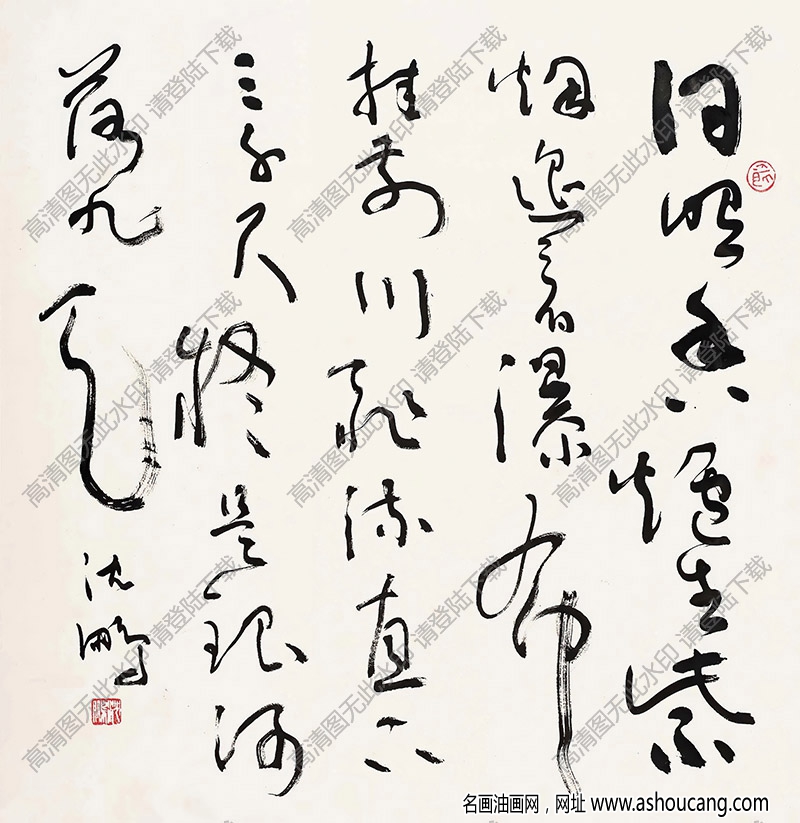 日照香爐生紫
烟遥看瀑布
挂前川飛流直下
三千尺疑是银河
落九天
沈鹏
高清图无此水印 请登陆下载
名画油画网，网址 www.ashoucang.com